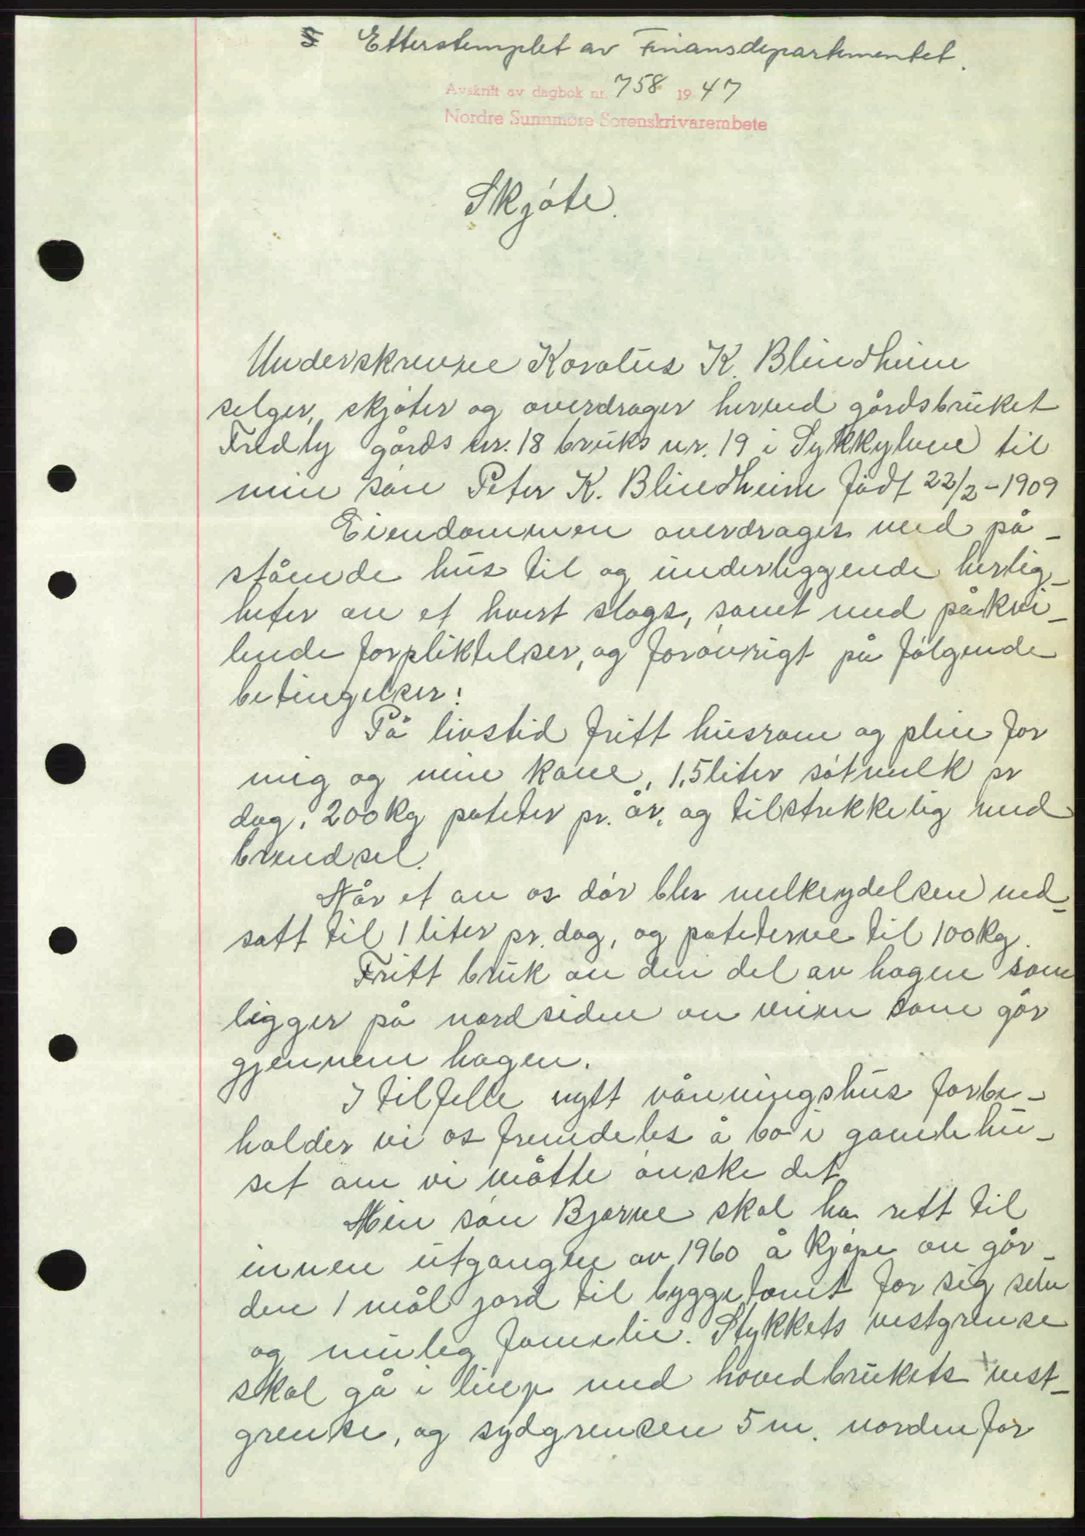 Etterstemplet av Finansdepartementet.
Avskrift av dagbok nr. 758 1947
Nordre Sunnmøre Sorenskrivarembete
Skjøte.
Underskrevne Karolus K. Blindheim
selger, skjøter og overdrager herved gårdsbruket
Fredly gårds nr. 18 bruks nr. 19 i Sykkylven til
min søn Peter K. Blindheim født 22/2-1909
Eiendommen overdrages med på-
stående hus til og underliggende herlig-
heter av et hvert slags, samt med påkvi-
lende forpliktelser, og forøvrigt på følgende
betingelser:
På livstid fritt husrom og pleie for
mig og min kone, 1,5 liter søtmelk pr
dag, 200 kg poteter pr. år, og tilstrekkelig med
brendsel.
Når et av os dør blir melkeydelsen ned-
satt til 1 liter pr. dag, og potetene til 100 kg.
Fritt bruk av den del av hagen som
ligger på nordsiden av veien som går
gjennem hagen.
I tilfelle nytt våningshus forbe-
holder vi os fremdeles å bo i gamlehu-
set om vi måtte ønske det.
Min søn Bjarne skal ha rett til
innen utgangen av 1960 å kjøpe av går-
den 1 mål jord til byggetomt for sig selv
og mulig familie. Stykkets vestgrense
skal gå i linje med hovedbrukets vest-
grense, og sydgrensen 5 m. nordenfor